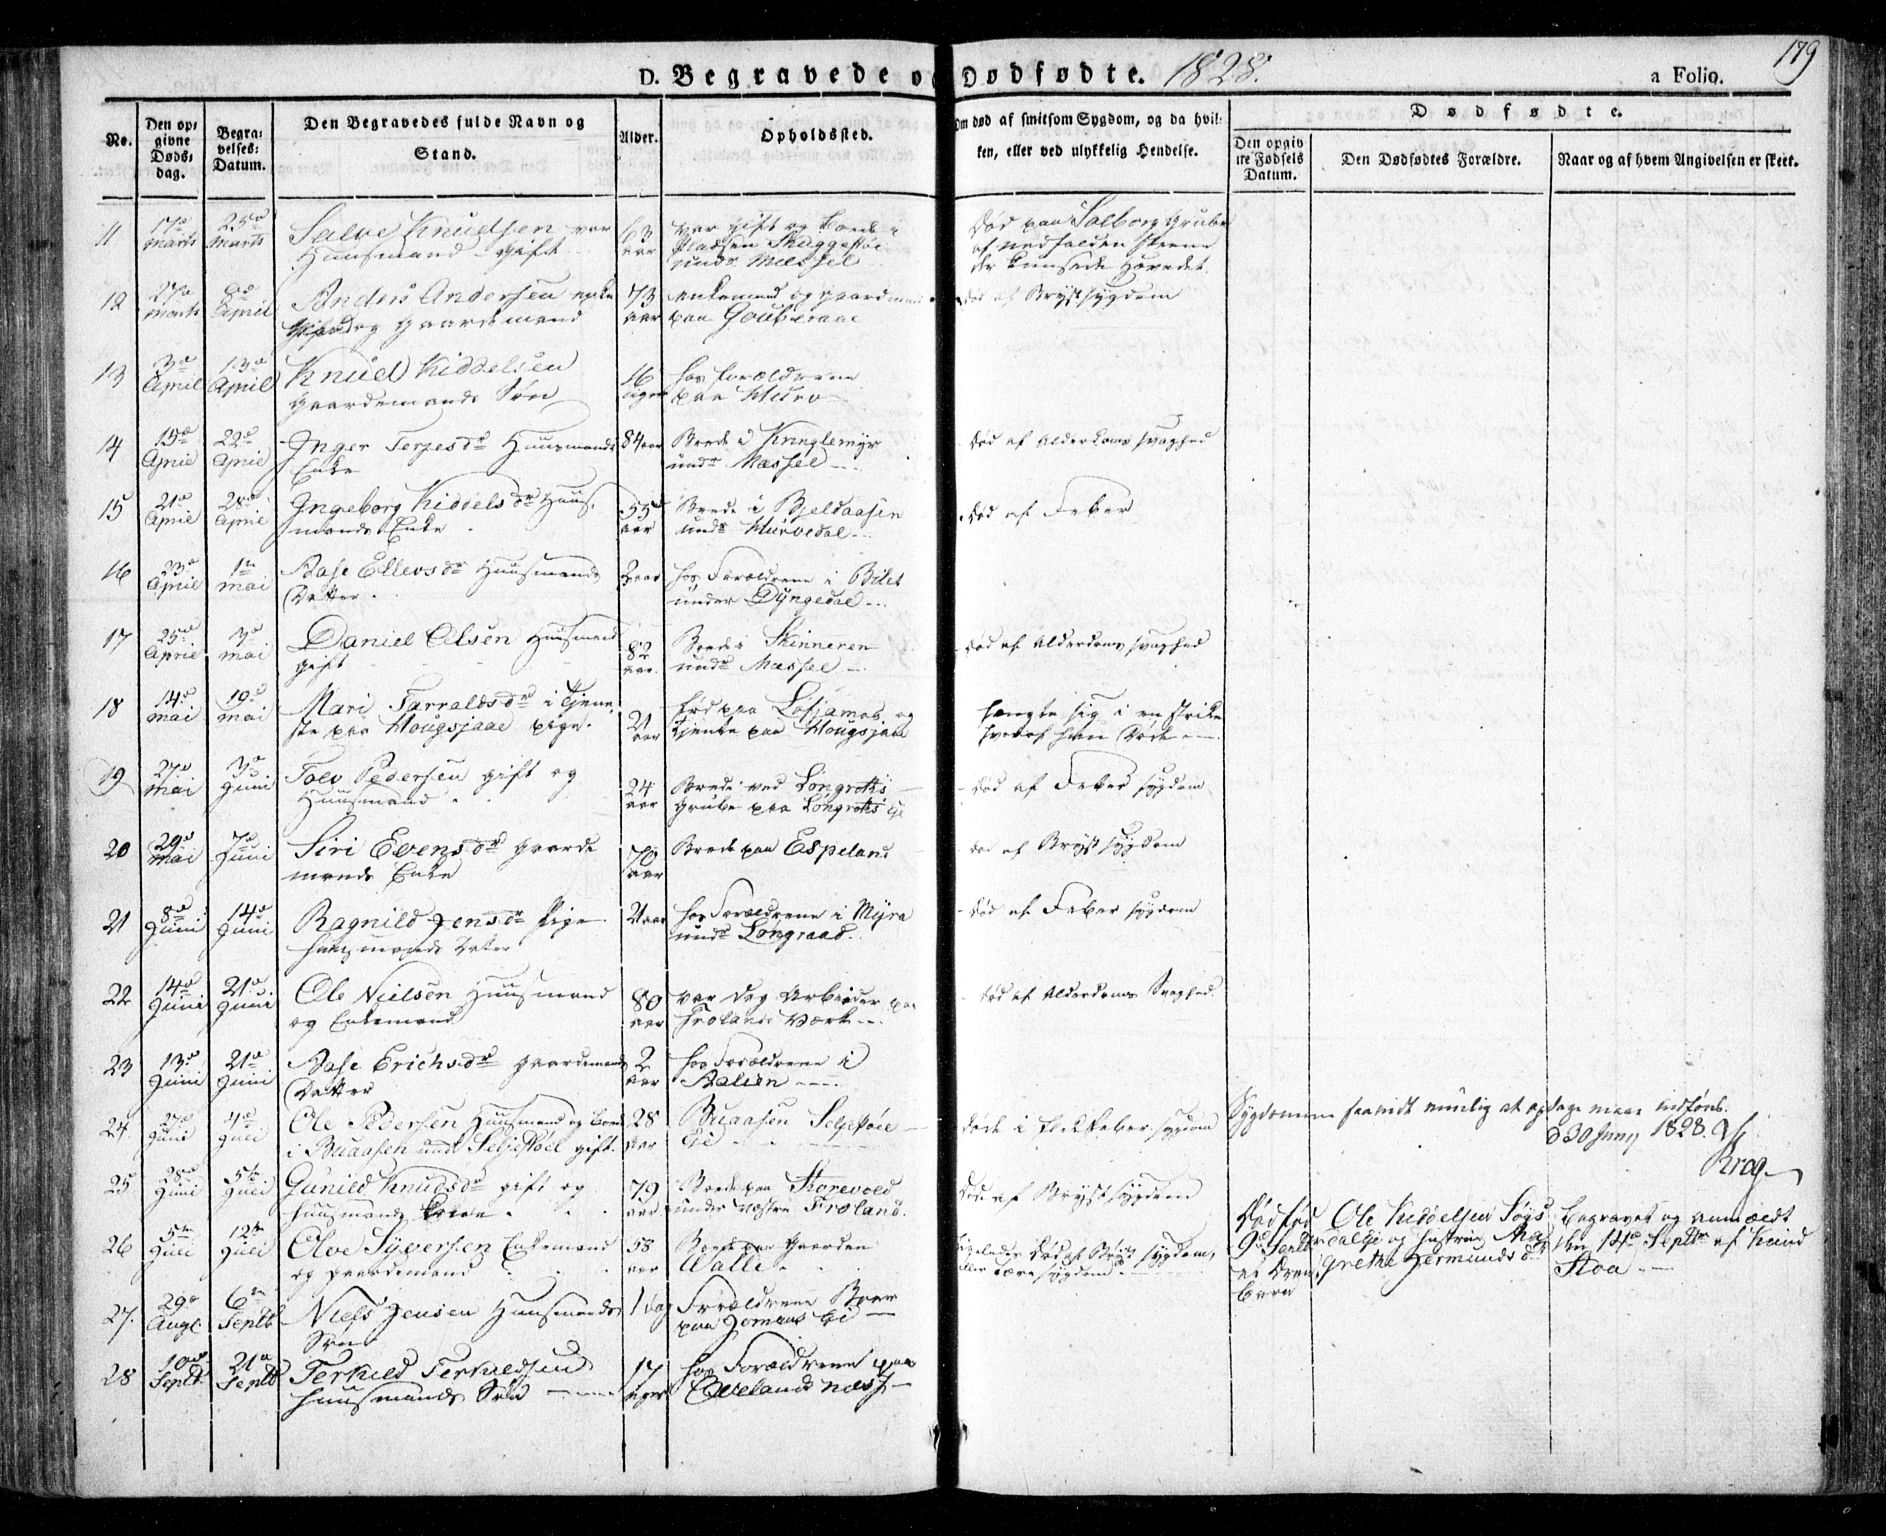 D. Begravede og Dødfødte. 1828. a Folio. 179
No.
Den op-
givne
Døds-
dag.
Begra-
velses-
Datum.
Den Begravedes fulde Navn og
Stand.
Alder.
Opholdssted.
Om død af smitsom Sygdom, og da hvil-
ken, eller ved ulykkelig Hendelse.
Dødfødte.
Den opgiv
ne Fødsels
Datum.
Den Dødfødtes Forældre.
Naar og af hvem Angivelsen er skeet.
11 17de Marts 25de Marts
Salve Knudsen var
Huusmand gift
63 aar
var gift og boede i
Pladsen Skuggestøe
undr Mæssel
Død paa Solborg Grube
af nedfalden Steene
der knusede Hovedet.
12 27de Marts April
Anders Andersen enke
og Gaardemand
73 aar
enkemand og gaardmand
paa Gouberaae
død af Brystsygdom
13 3de April 13de April
Knud Kiddelsen
Gaardemands Søn
16 uger
hos Forældrene
paa Muro
14 15de April 22de April
Inger Terjesdr Huusmands
Enke
84 aar
Boede i Kringlemyr
undr Mæssel
død af Alderdoms svaghed
15 21de April 28de April
Ingeborg Kiddelsdr Huus-
mands Enke
55 aar
Boede i Bjeldaasen
undr Hurvedal
død af Feber
16 23de April 1te Mai
Aase Ellevsdr Huusmands
Datter
aar
hos Forældrene i Bilet
under Dyngedal
17 25de April 3de Mai
Daniel Olsen Huusmand
gift
82 aar.
Boede i Skinneren
undr Mæssel
død af Alderdoms svaghed
18 14de Mai 19de Mai
Mari Tarraldsdr i Tjene-
ste paa Hougsjaae pige.
21 aar
fød paa Lofjamos og
tjente paa Hougsjaae
hængte sig i en Strikke
hvoraf hun døde
19 27de Mai 3de Juni
Tolv Pedersen gift og
Huusmand
24 aar
Boede ved Longroths
Grube paa Longroths Ei
død af Feber sygdom
20 29de Mai 7de Juni
Siri Evensdr Gaarde
mands Enke
70 aar
Boede paa Espeland
død af Brystsygdom
21 8de Juni 14de Juni
Ragnild Jensdr Pige
huusmands Datter
21 aar
hos Forældrene i Myra
undr Longraad.
død af Feber sygdom
22 14de Juni 21de Juni
Ole Nielsen Huusmand
og Enkemand
80 aar
var Dag Arbeider paa
Frolands Værk
død af Alderdoms Svaghed.
23 13de Juni 21de Juni
Aase Erichsdr Gaardemands
Datter
2 aar
hos Forældrene i
Aalien
24 Juni 4de Juli
Ole Pedersen Huusmand og boede
i Buaasen undr Seljestøel gift.
28 aar
Buaasen Seljestøle
Ei
døde i Flekfeber sygdom
Sygdommen saavidt muelig at opdage maae indføres.
d 30 Juny 1828.
Krog
25 28de Juni 5te Juli
Gunild Knudsdr gift og
huusmands kone
79 aar
Boede paa Storevold
under Vestre Froland.
død af Brystsygdom
26 5te Juli 12te Juli
Olve Syversen Enkemand
og gaardemand
58 aar
Boede paa Gaarden
Walle
ligeledes død af Bryst sygdom,
eller tære sygdom
Dødfød
9de Septbr
et Drenge
barn
Ole Kiddelsen Søgs
dalsei og hustrue Mar
grethe Germundsdr
Begravet og anmældt
den 14de Septbr af Knud
Stoa
27. 29de Aug 6te Septb
Niels Jensen Huusmands
Søn
1 dag
Forældrene Boer
paa Jomaas Ei
28 10de Septb 21de Septb
Terkild Terkildsen
huusmands Søn
17 uger
hos Forældrene paa
Ovelands næss